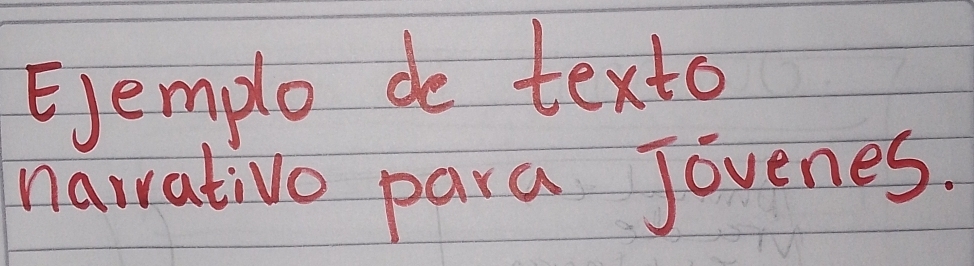 Ejemplo de texto
narrativo para Jóvenes.